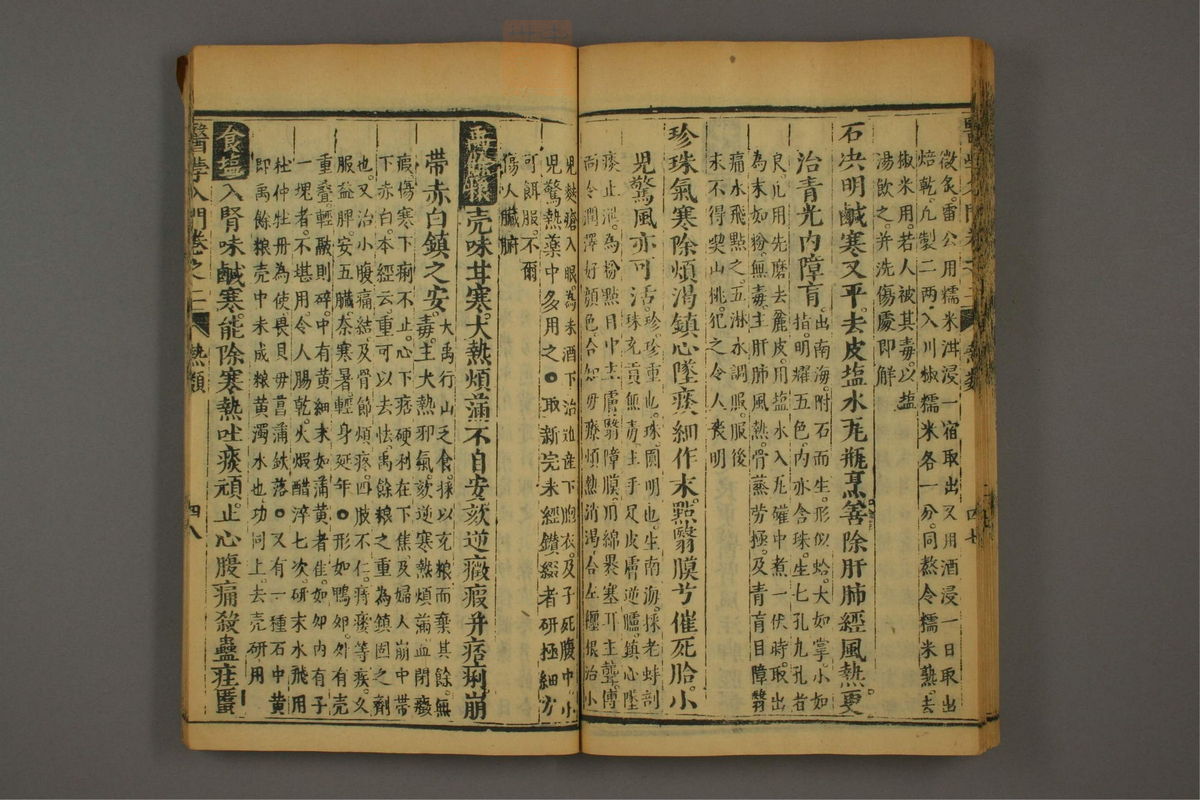 微炙。雷公用糯米泔浸一宿取出又用酒浸一日取出
焙乾。凡製二兩入川椒糯米各一分。同熬令糯米熟。去
椒米用。若人被其毒。以塩
湯飲之。并洗傷處即解
石决明鹹寒又平。去皮塩水瓦瓶烹。善除肝肺經風熱。更
治青光内障盲。
出南海。附石而生。形似蛤。大如掌。小如
指。明耀五色。内亦含珠。生七孔九孔者
良。凡用先磨去麄皮。用塩水入瓦確中煮一伏時。取出
為末如粉。無毒。主肝肺風熱。骨蒸劳極。及青盲目障翳
痛。水飛點之。五淋水調服。服後
末不得喫山桃。犯之令人丧明
珍珠氣寒除煩渴鎮心墜痰。細作末。點翳膜。方催死胎。小
児驚風亦可活。
珍。珍重也。珠。圓明也。生南海。採老蚌剖
珠充貢。無毒。主手足皮膚逆臚。鎮心墜
痰止泄。為粉點目中。主膚翳障膜。用綿裹塞耳主聾。傅
面令潤澤好顔色。合知母療煩熱消渴。合左纒根治小
児麸瘡入眼。為末酒下治難産下胞衣。及子死腹中。小
児驚熱藥中多用之。○取新完未經鑽綴者研極細。方
可餌服。不爾
傷人臓腑
禹餘粮
壳味甘寒。大熱煩滿不自安。欬逆癥瘕并痞痢。崩
帶赤白鎮之安。
大禹行山乏食。採以充粮而棄其餘。無
毒。主大熱邪氣。欬逆寒熱煩滿血閉癥
瘕。傷寒下痢不止。心下痞硬利在下焦。及婦人崩中帶
下赤白。本經云。重可以去怯。禹餘粮之重。為鎮固之劑
也。又治小腹痛結。及骨節煩疼。四肢不仁。痔瘻等疾。久
服益脾。安五臓。奈寒暑輕身延年。○形如鴨卵。外有壳
重疊。輕敲則碎。中有黄細末如蒲黄者佳。如卵内有子
一塊者。不堪用。令人腸乾。火煅醋淬七次。研末水飛用
杜仲牡丹為使。畏貝母菖蒲鉄落。○又有一種石中黄
即禹餘粮壳中未成粮黄濁水也。功同上。去壳研用
食塩
入腎味鹹寒。能除寒熱吐痰頑。止心腹痛殺蟲疰䘌
醫學入門卷之二 熱類 四八